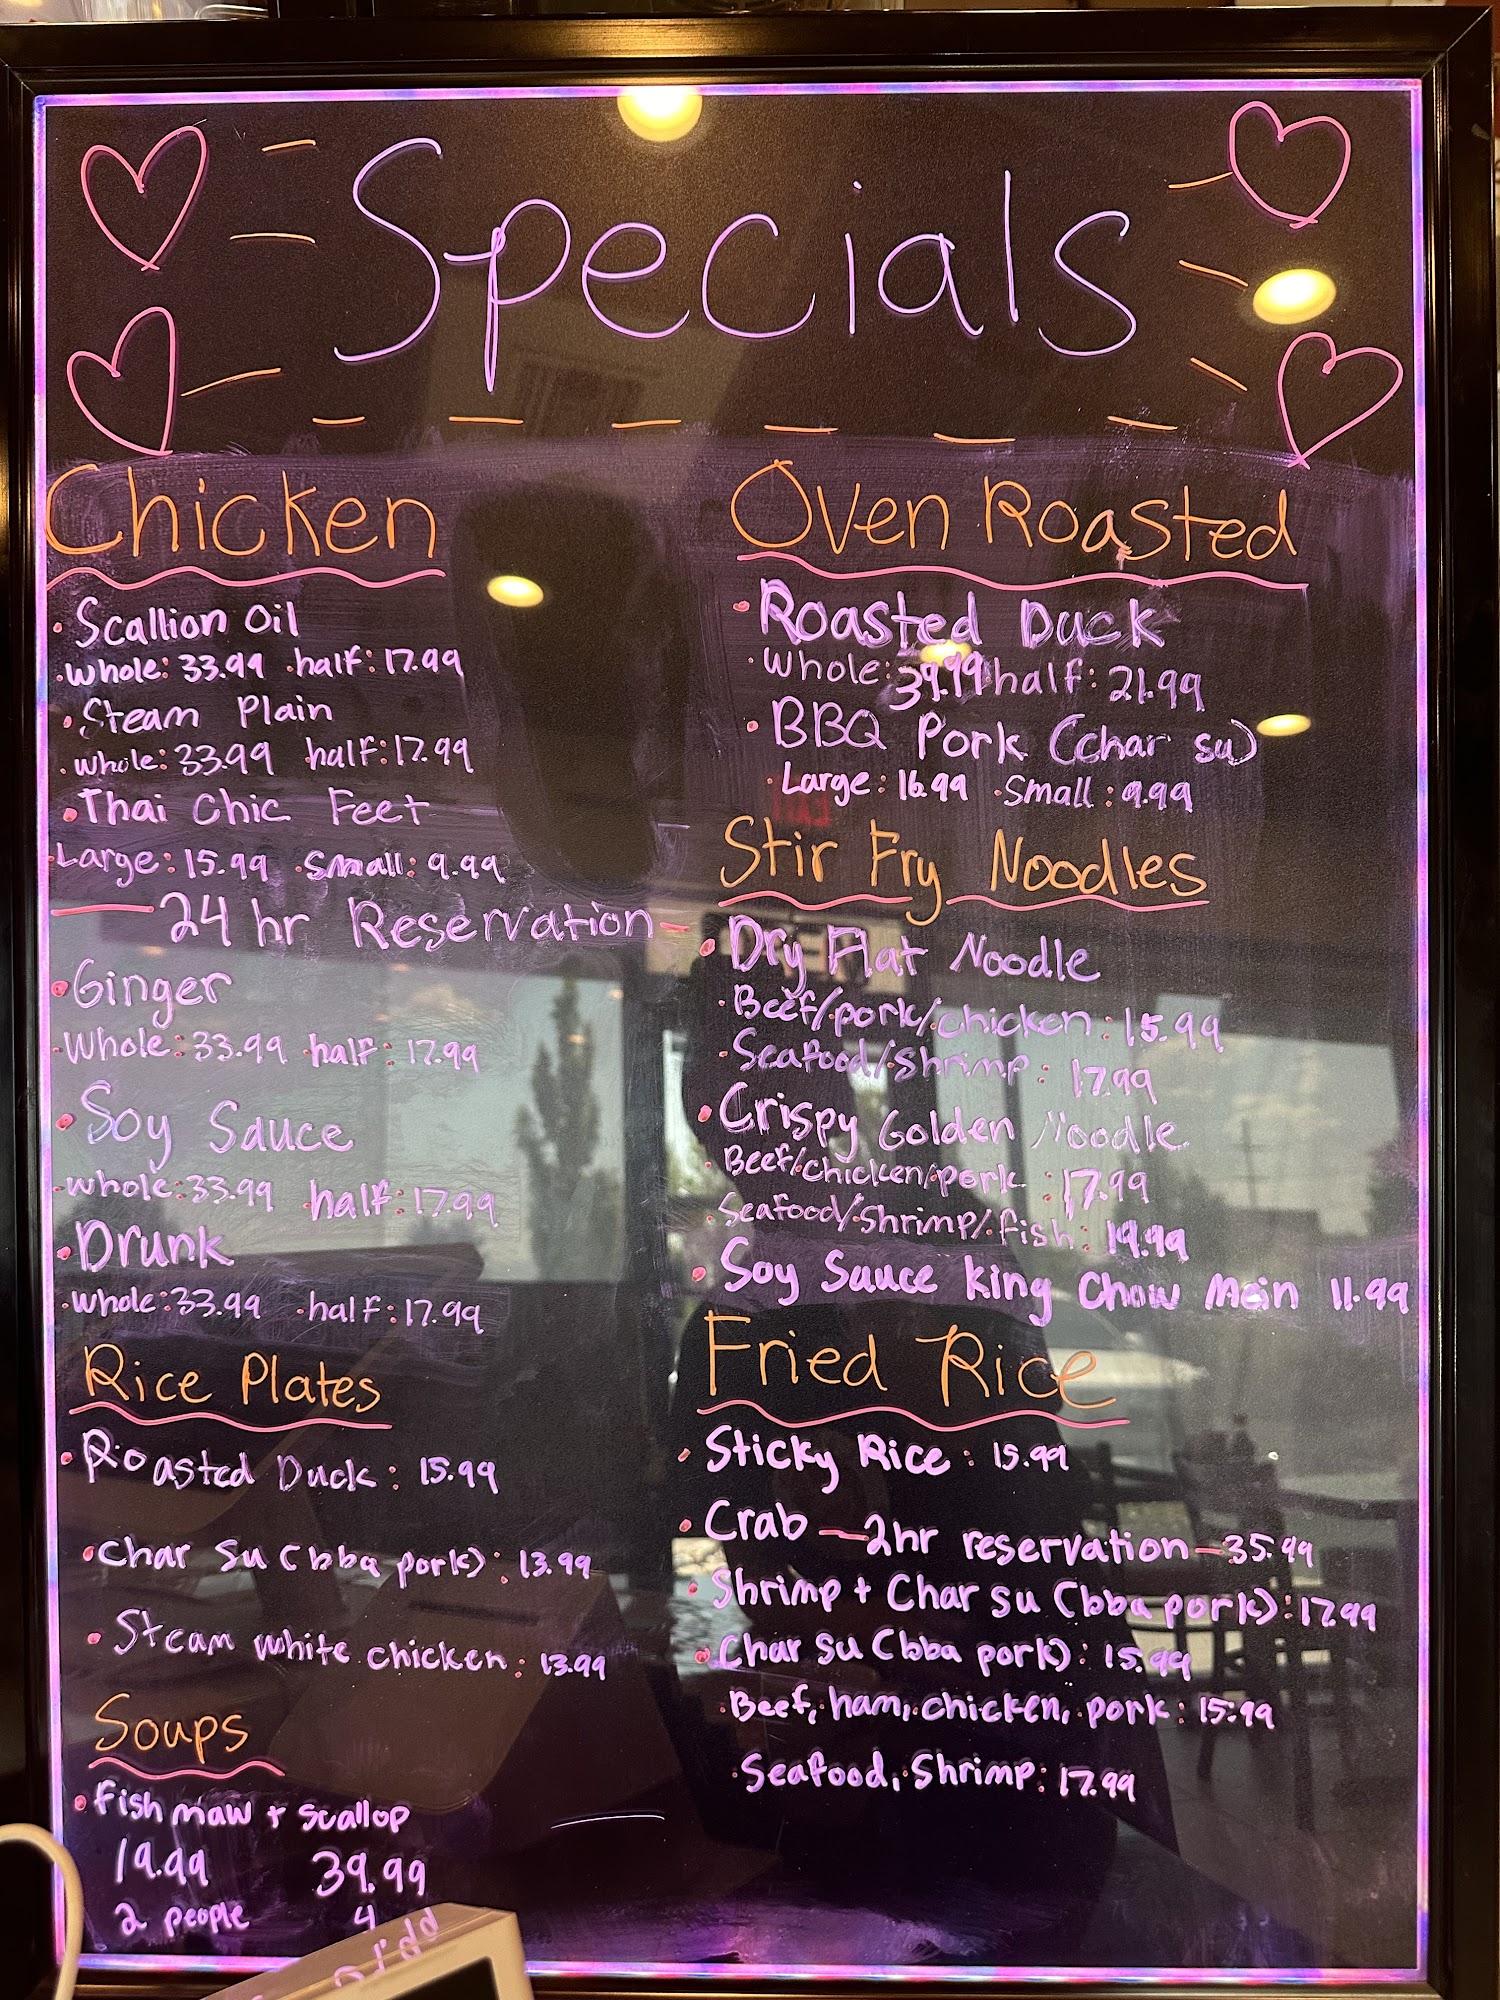 Specials
Chicken
• Scallion Oil
• Whole: 33.99 • half: 17.99
• Steam Plain
• whole: 33.99 half: 17.99
• Thai Chic Feet
• Large: 15.99 • Small: 9.99
— 24 hr Reservation —
• Ginger
• Whole: 33.99 • half: 17.99
• Soy Sauce
• whole: 33.99 half: 17.99
• Drunk
• whole: 33.99 • half: 17.99
Rice Plates
• Roasted Duck: 15.99
• Char Su (bbq pork): 13.99
• Steam white chicken: 13.99
Soups
• fish maw + scallop
19.99 39.99
2 people 4
Oven Roasted
• Roasted Duck
• Whole: 39.99 half: 21.99
• BBQ Pork (char su)
• Large: 16.99 • Small: 9.99
Stir Fry Noodles
• Dry Flat Noodle
• Beef/pork/chicken: 15.99
• Seafood/Shrimp: 17.99
• Crispy Golden Noodle
• Beef/chicken/pork: 17.99
• Seafood/shrimp/fish: 19.99
• Soy Sauce King Chow Mein 11.99
Fried Rice
• Sticky Rice: 15.99
• Crab — 2hr reservation — 35.99
• Shrimp + Char Su (bbq pork): 17.99
• Char Su (bbq pork): 15.99
• Beef, ham, chicken, pork: 15.99
• Seafood, Shrimp: 17.99